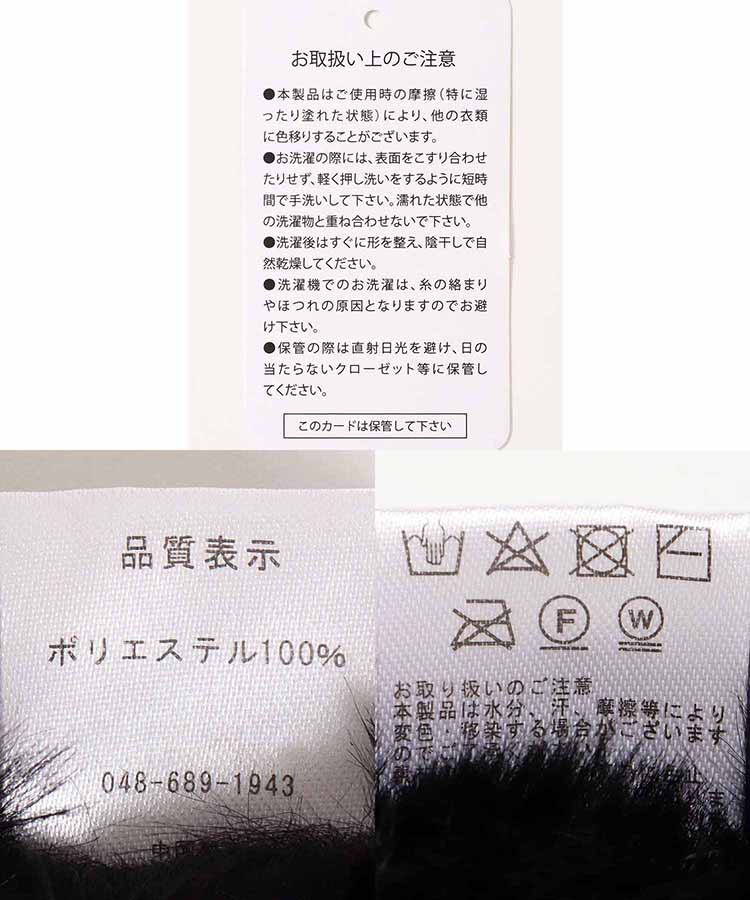 お取扱い上のご注意
●本製品はご使用時の摩擦（特に湿
ったり塗れた状態）により、他の衣類
に色移りすることがございます。
●お洗濯の際には、表面をこすり合わせ
たりせず、軽く押し洗いをするように短時
間で手洗いして下さい。濡れた状態で他
の洗濯物と重ね合わせないで下さい。
●洗濯後はすぐに形を整え、陰干しで自
然乾燥してください。
●洗濯機でのお洗濯は、糸の絡まり
やほつれの原因となりますのでお避
け下さい。
●保管の際は直射日光を避け、日の
当たらないクローゼット等に保管し
てください。
このカードは保管して下さい
品質表示
ポリエステル100%
048-689-1943
F
W
お取り扱いのご注意
本製品は水分、汗、摩擦等により
変色・移染する場合がございます
ので